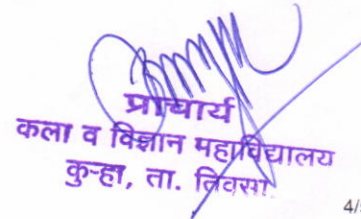 प्राचार्य
कला व विज्ञान महाविद्यालय
कुऱ्हा, ता. तिवसा.
4/